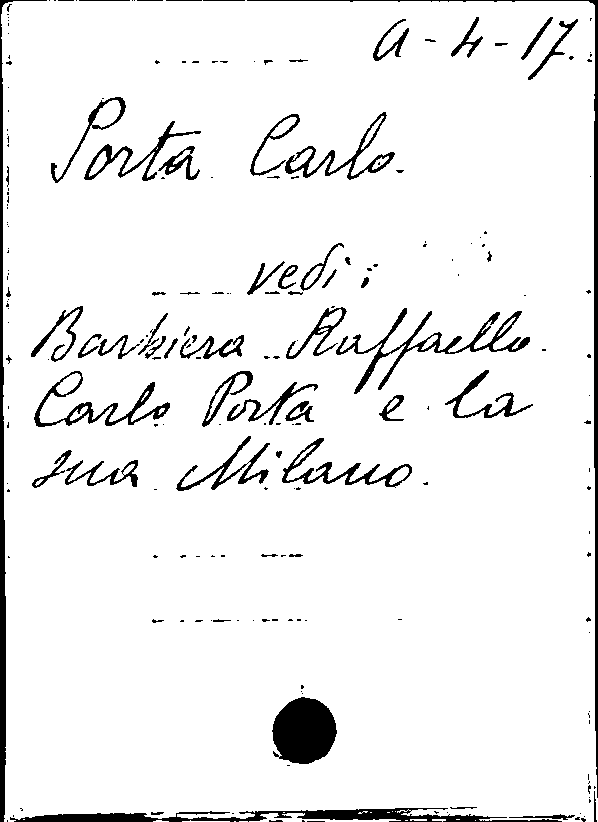 A-4-17.
Porta Carlo.
vedi:
Barbiera Raffaello.
Carlo Porta e la
sua Milano.